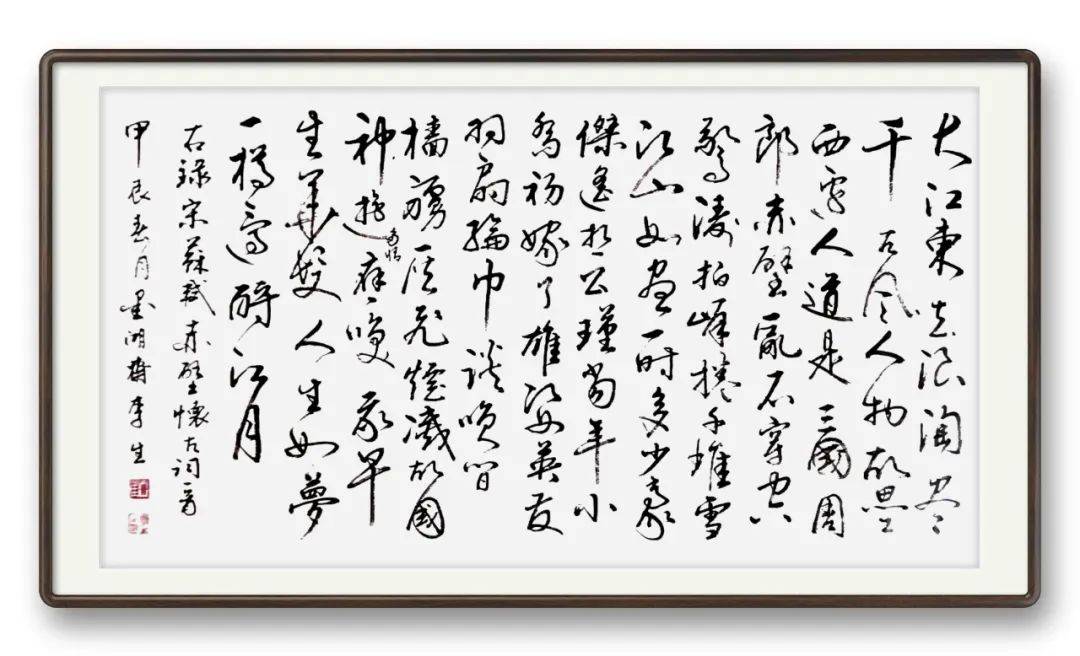 大江東去浪淘尽
千古风人物故壘
西邊人道是三國周
郎赤壁亂石穿空
驚濤拍岸捲千堆雪
江山如畫一時多少豪
傑遙想公瑾當年小
喬初嫁了雄姿英發
羽扇綸巾談笑間
檣櫓灰飛煙滅故國
神遊多情應笑我早
生華髮人生如夢
一樽還酹江月
右錄宋蘇軾赤壁懷古詞一首
甲辰春月墨湖李生